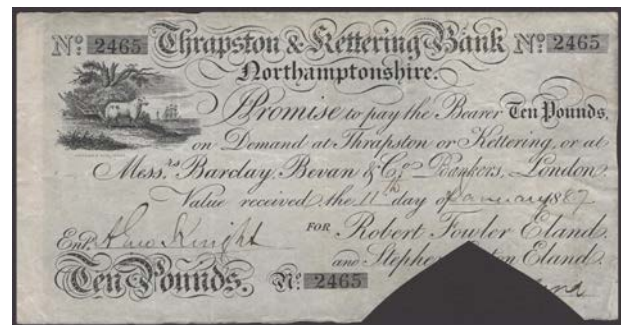 No. 2465 Thrapston & Kettering Bank No. 2465
Northamptonshire.
I Promise to pay the Bearer Ten Pounds,
on Demand at Thrapston or Kettering, or at
Messrs. Barclay, Bevan & Co. Bankers, London.
Value received the 11th day of January 1887
FOR Robert Fowler Eland.
Entd. Knight
and Stephen Eland.
Ten Pounds. No. 2465